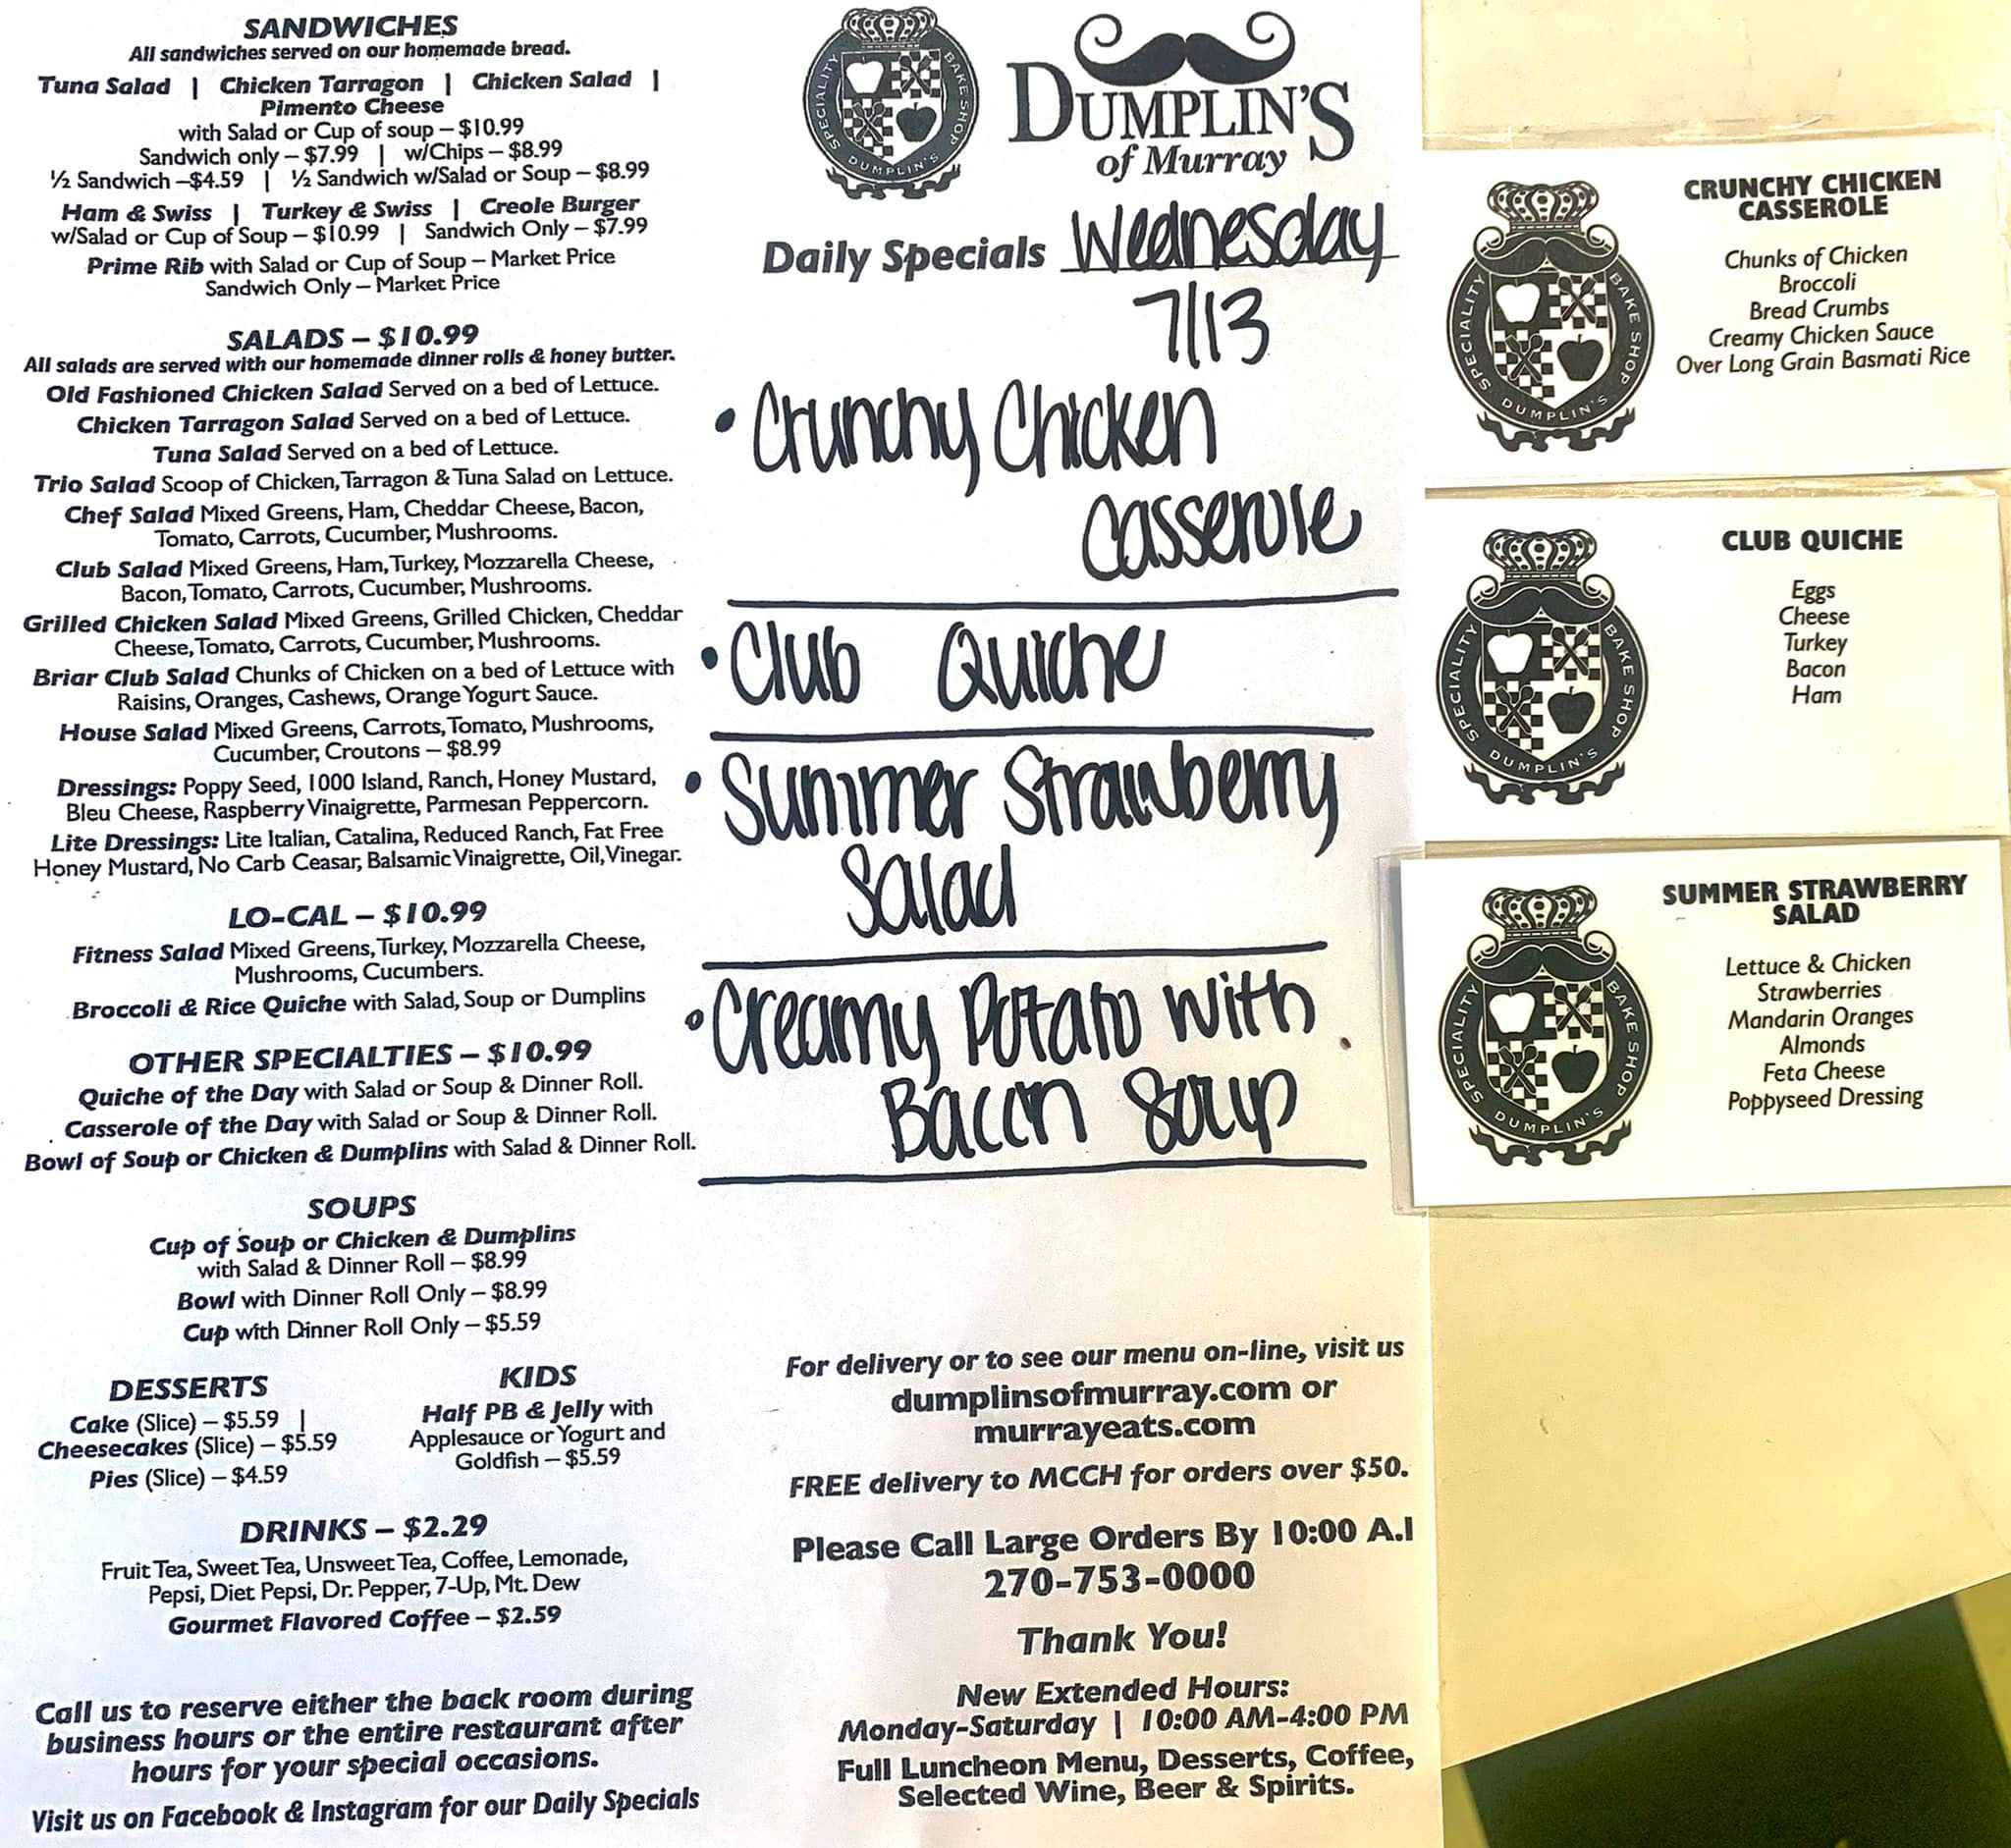 SANDWICHES
All sandwiches served on our homemade bread.
Tuna Salad | Chicken Tarragon | Chicken Salad |
Pimento Cheese
with Salad or Cup of soup – $10.99
Sandwich only – $7.99 | w/Chips – $8.99
½ Sandwich –$4.59 | ½ Sandwich w/Salad or Soup – $8.99
Ham & Swiss | Turkey & Swiss | Creole Burger
w/Salad or Cup of Soup – $10.99 | Sandwich Only – $7.99
Prime Rib with Salad or Cup of Soup – Market Price
Sandwich Only – Market Price
SALADS – $10.99
All salads are served with our homemade dinner rolls & honey butter.
Old Fashioned Chicken Salad Served on a bed of Lettuce.
Chicken Tarragon Salad Served on a bed of Lettuce.
Tuna Salad Served on a bed of Lettuce.
Trio Salad Scoop of Chicken, Tarragon & Tuna Salad on Lettuce.
Chef Salad Mixed Greens, Ham, Cheddar Cheese, Bacon,
Tomato, Carrots, Cucumber, Mushrooms.
Club Salad Mixed Greens, Ham, Turkey, Mozzarella Cheese,
Bacon, Tomato, Carrots, Cucumber, Mushrooms.
Grilled Chicken Salad Mixed Greens, Grilled Chicken, Cheddar
Cheese, Tomato, Carrots, Cucumber, Mushrooms.
Briar Club Salad Chunks of Chicken on a bed of Lettuce with
Raisins, Oranges, Cashews, Orange Yogurt Sauce.
House Salad Mixed Greens, Carrots, Tomato, Mushrooms,
Cucumber, Croutons – $8.99
Dressings: Poppy Seed, 1000 Island, Ranch, Honey Mustard,
Bleu Cheese, Raspberry Vinaigrette, Parmesan Peppercorn.
Lite Dressings: Lite Italian, Catalina, Reduced Ranch, Fat Free
Honey Mustard, No Carb Ceasar, Balsamic Vinaigrette, Oil, Vinegar.
LO-CAL – $10.99
Fitness Salad Mixed Greens, Turkey, Mozzarella Cheese,
Mushrooms, Cucumbers.
Broccoli & Rice Quiche with Salad, Soup or Dumplins
OTHER SPECIALTIES – $10.99
Quiche of the Day with Salad or Soup & Dinner Roll.
Casserole of the Day with Salad or Soup & Dinner Roll.
Bowl of Soup or Chicken & Dumplins with Salad & Dinner Roll.
SOUPS
Cup of Soup or Chicken & Dumplins
with Salad & Dinner Roll – $8.99
Bowl with Dinner Roll Only – $8.99
Cup with Dinner Roll Only – $5.59
DESSERTS
Cake (Slice) – $5.59 |
Cheesecakes (Slice) – $5.59
Pies (Slice) – $4.59
KIDS
Half PB & Jelly with
Applesauce or Yogurt and
Goldfish – $5.59
DRINKS – $2.29
Fruit Tea, Sweet Tea, Unsweet Tea, Coffee, Lemonade,
Pepsi, Diet Pepsi, Dr. Pepper, 7-Up, Mt. Dew
Gourmet Flavored Coffee – $2.59
Call us to reserve either the back room during
business hours or the entire restaurant after
hours for your special occasions.
Visit us on Facebook & Instagram for our Daily Specials
SPECIALITY BAKE SHOP
DUMPLIN'S
DUMPLIN'S
of Murray
Daily Specials Wednesday
7/13
• Crunchy Chicken
Casserole
• Club Quiche
• Summer Strawberry
Salad
• Creamy Potato with
Bacon Soup
For delivery or to see our menu on-line, visit us
dumplinsofmurray.com or
murrayeats.com
FREE delivery to MCCH for orders over $50.
Please Call Large Orders By 10:00 A.
270-753-0000
Thank You!
New Extended Hours:
Monday-Saturday | 10:00 AM-4:00 PM
Full Luncheon Menu, Desserts, Coffee,
Selected Wine, Beer & Spirits.
SPECIALITY BAKE SHOP
DUMPLIN'S
CRUNCHY CHICKEN
CASSEROLE
Chunks of Chicken
Broccoli
Bread Crumbs
Creamy Chicken Sauce
Over Long Grain Basmati Rice
SPECIALITY BAKE SHOP
DUMPLIN'S
CLUB QUICHE
Eggs
Cheese
Turkey
Bacon
Ham
SPECIALITY BAKE SHOP
DUMPLIN'S
SUMMER STRAWBERRY
SALAD
Lettuce & Chicken
Strawberries
Mandarin Oranges
Almonds
Feta Cheese
Poppyseed Dressing